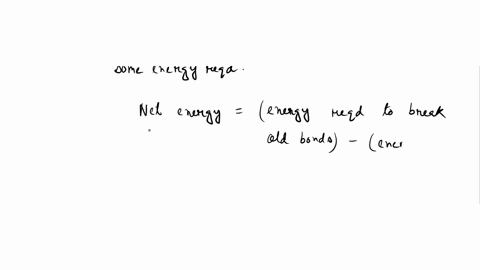 some energy reqd.
Net energy = (energy reqd to break
old bonds) - (ener